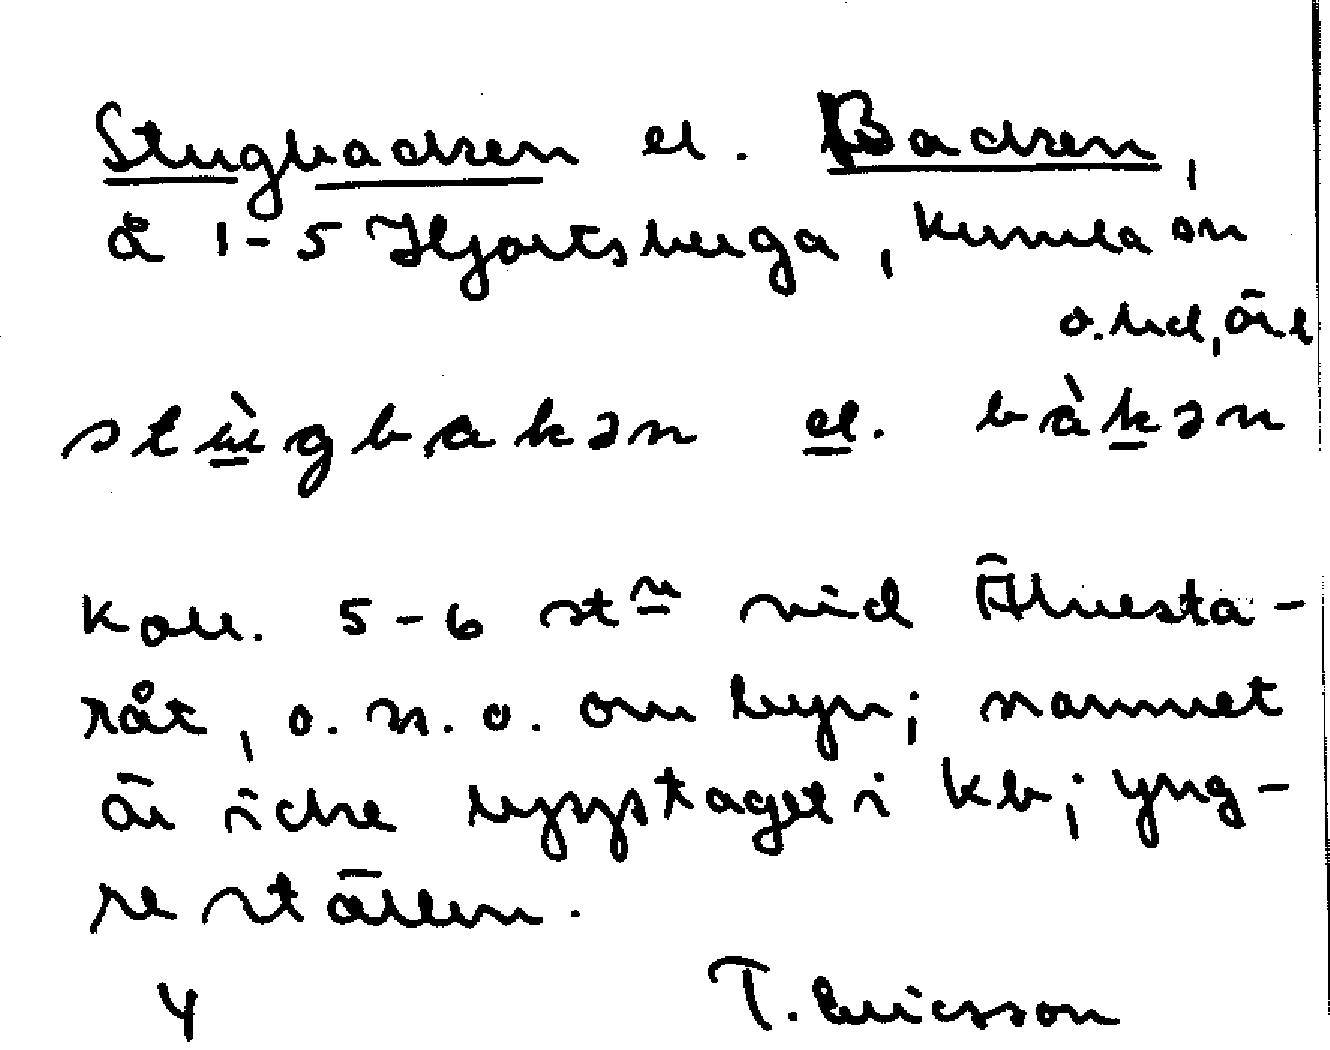 Stugbacken el. Backen,
å 1-5 Hjortsberga, Kumla sn
o. hd, Öre
stùgbakən el. bàkən
Koll. 5-6 stn vid Älvesta-
råt, o.n.o. om byn; namnet
är icke upptaget i kb; yng-
re ställen.
4 T. Ericsson